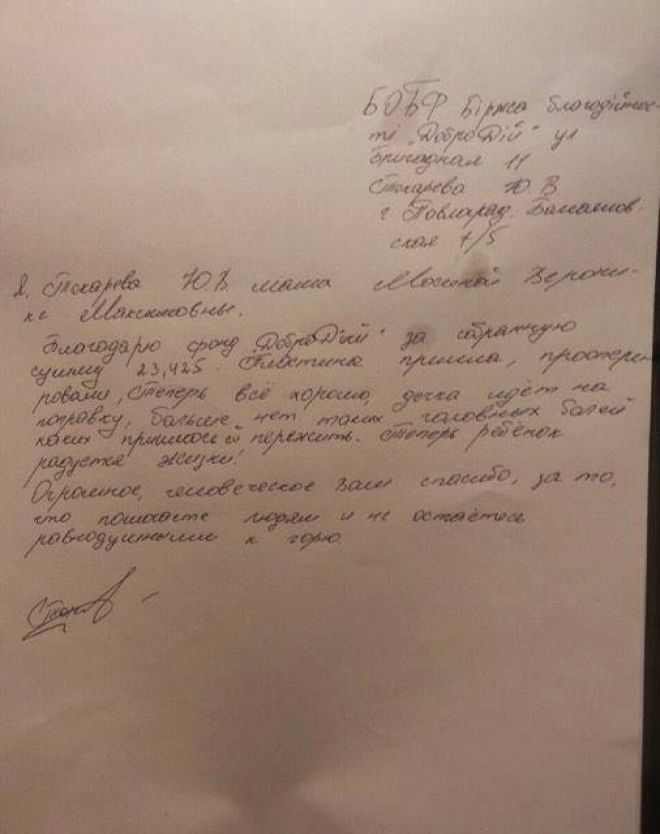 БОБФ Біржа благодійнос-
ті "ДоброДій" ул
Бригадная 11
Токарева Ю.В
г Павлоград.
ская 7/5
Я. Токарева Ю.В. мама Мосиной Верони-
ке Максимовны.
Благодарю фонд "ДоброДій" за собранную
сумму 23,425. Пластина пришла, проопери
ровали, Теперь всё хорошо, дочка идёт на
поправку, больше нет таких головных болей
каких пришлось ей пережить. Теперь ребёнок
радуется жизни!
Огромное, человеческое Вам спасибо, за то,
что помогаете людям и не остаётесь
равнодушными к горю.